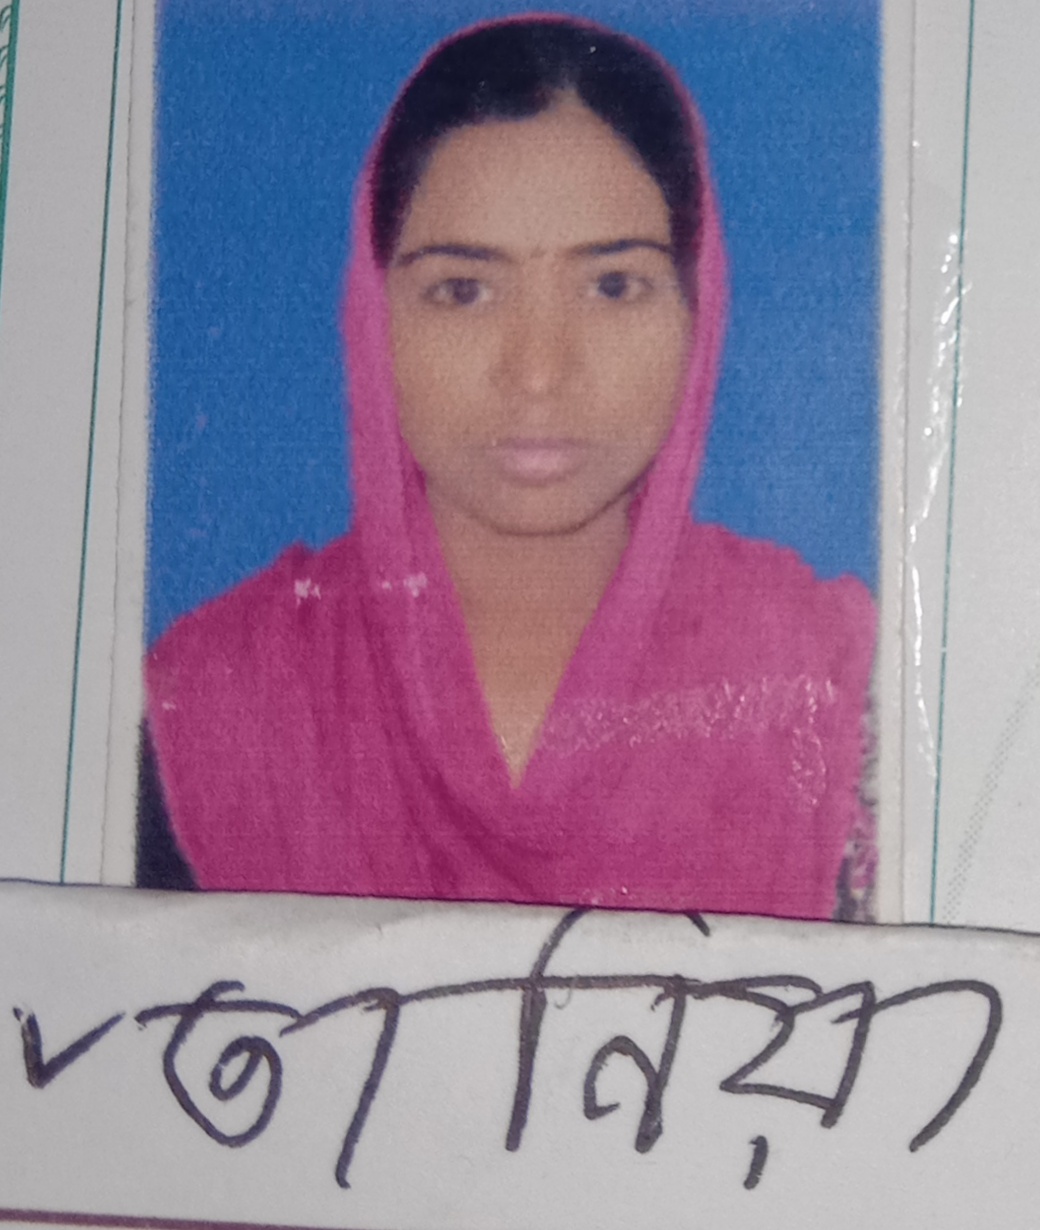 তানিয়া